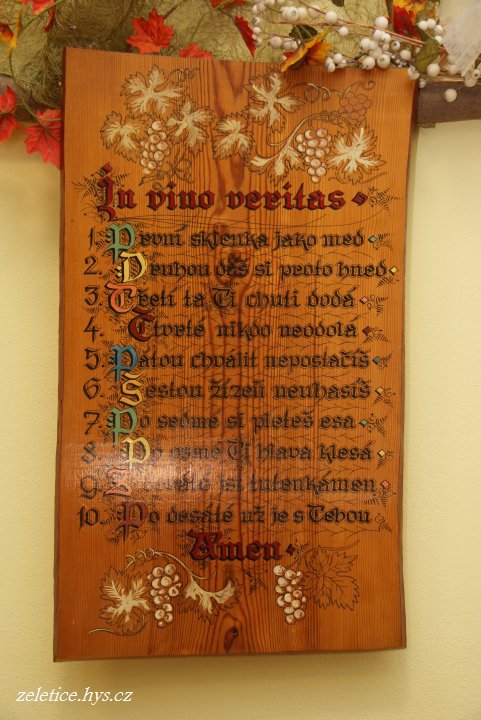 In vino veritas
1. První sklenka jako med
2. Druhou dáš si proto hned
3. Třetí ta Ti chuti dodá
4. Čtvrté nikdo neodolá
5. Pátou chválit nepostačíš
6. Šestou žízeň neuhasíš
7. Po sedmé si pleteš esa
8. Po osmé Ti hlava klesá
9. jsi tutenkámen
10. Po desáté už je s Tebou
Amen
zeletice.hys.cz